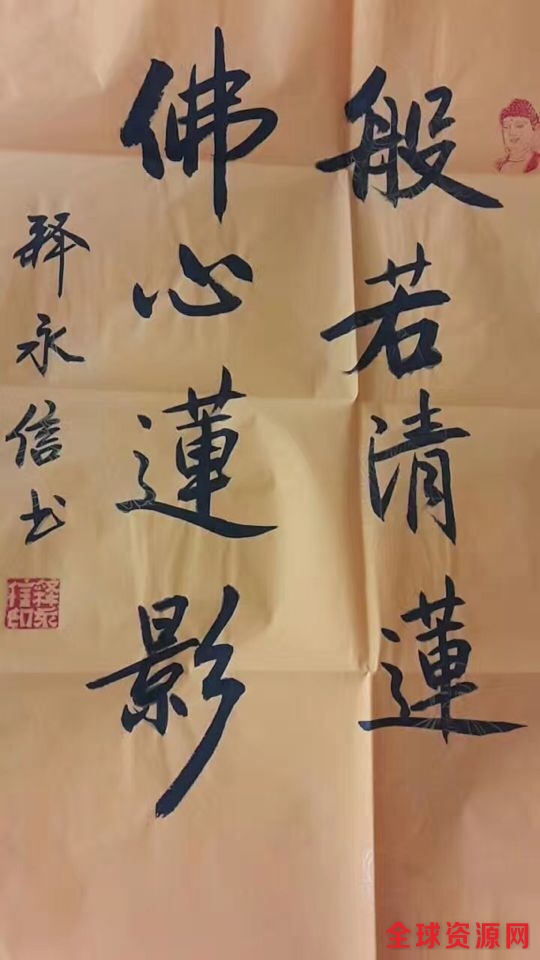 般若清蓮
佛心蓮影
释永信书
释永信印
全球资源网